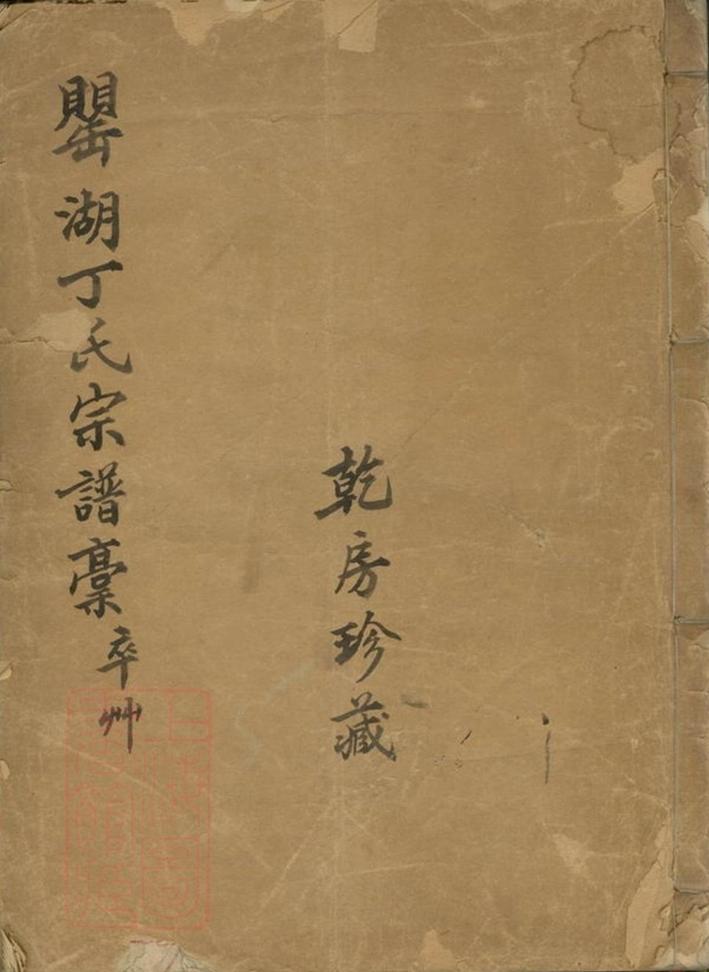 乾房珍藏
罌湖丁氏宗譜稾
卒艸